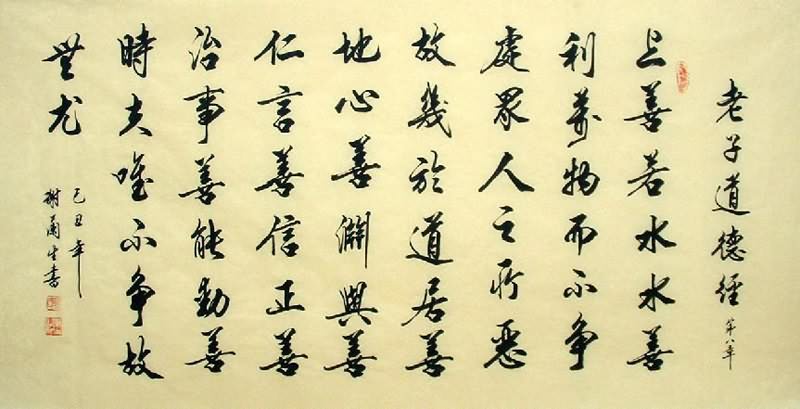 老子道德經 第八章
上善若水水善
利萬物而不争
處眾人之所惡
故幾於道居善
地心善淵與善
仁言善信正善
治事善能動善
時夫唯不争故
無尤
己丑年
生書